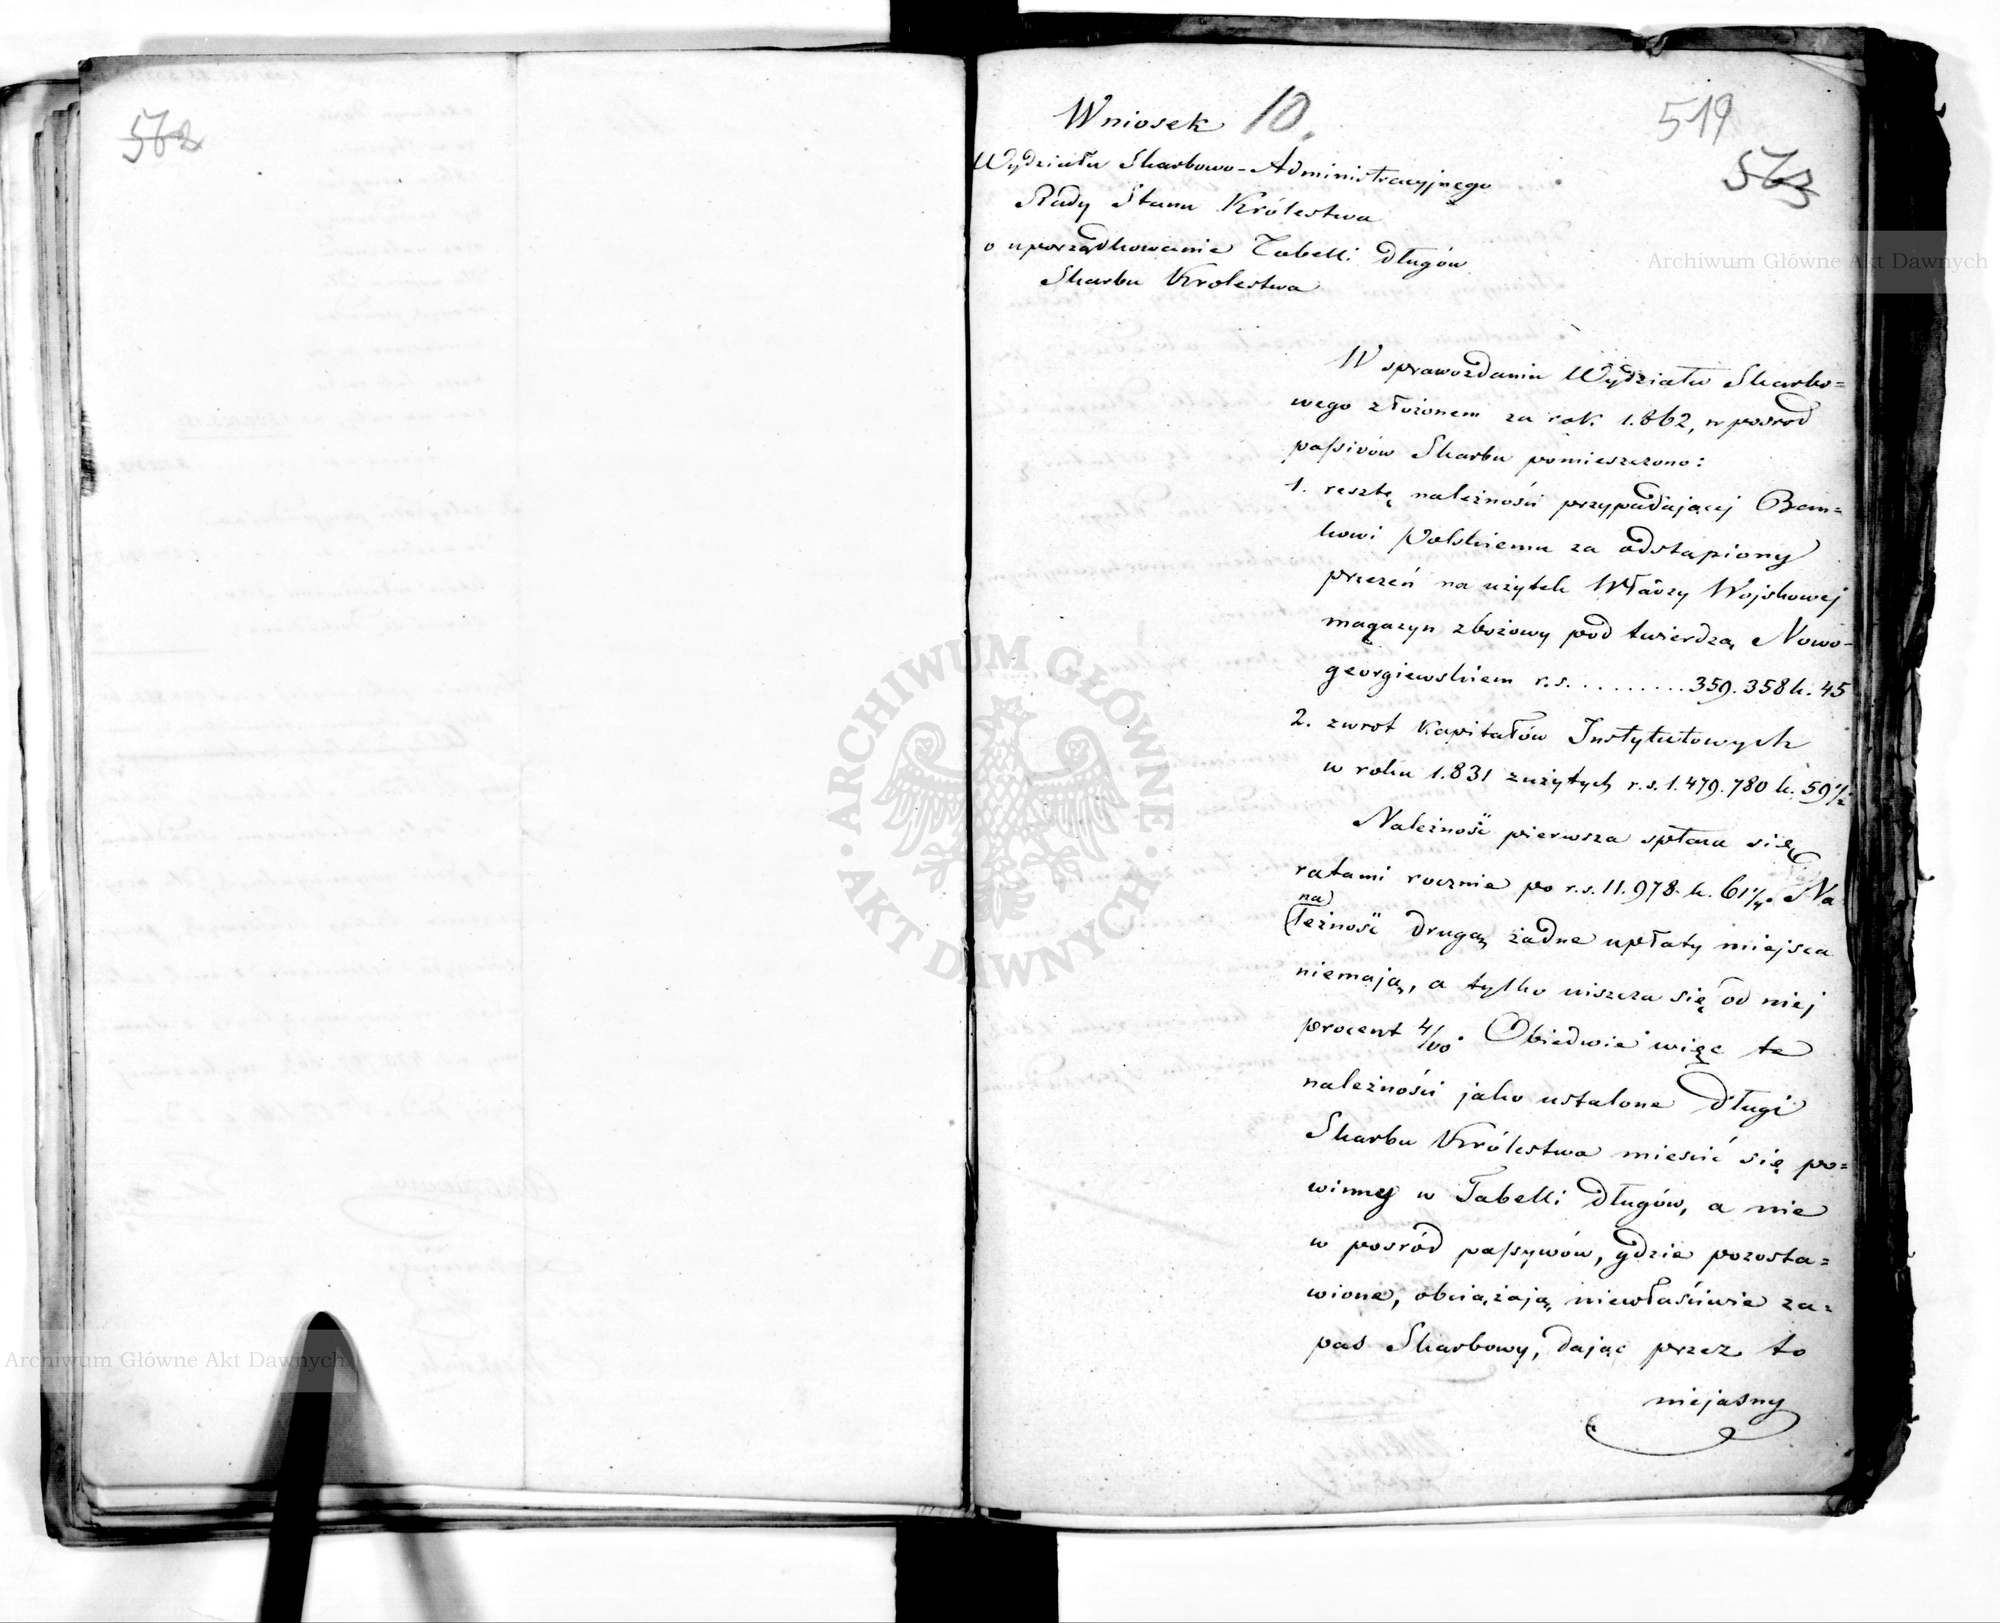 562
Wniosek 10.
519
563
Wydziału Skarbowo-Administracyjnego
Rady Stanu Królestwa
o uporządkowanie Tabelli długów
Skarbu Krolestwa
W sprawozdaniu Wydziału Skarbo=
wego złożonem za rok 1.862, w posrod
passivów Skarbu pomieszczono:
1. resztę należności przypadającej Ban=
kowi Polskiemu za odstąpiony
przezeń na użytek Władzy Wojskowej
magazyn zbożowy pod twierdzą Nowo-
georgiewskiem r.s. ......... 359.358 k. 45
2. zwrot Kapitałów Instytutowych
w roku 1.831 zużytych r.s. 1.479.780 k. 59 1/2
Należność pierwsza spłaca się
ratami rocznie po r.s. 11.978 k. 61 1/4. Na
na
leżność drugą żadne upłaty miejsca
niemają, a tylko uiszcza się od niej
procent 4/00. Obiedwie więc te
należności jako ustalone długi
Skarbu Królestwa mieścić się po=
winny w Tabelli długów, a nie
w posród passywów, gdzie pozosta=
wione, obciążają niewłaściwie za=
pas Skarbowy, dając przez to
niejasny
ARCHIWUM GŁÓWNE
AKT DAWNYCH
Archiwum Główne Akt Dawnych
Archiwum Główne Akt Dawnych